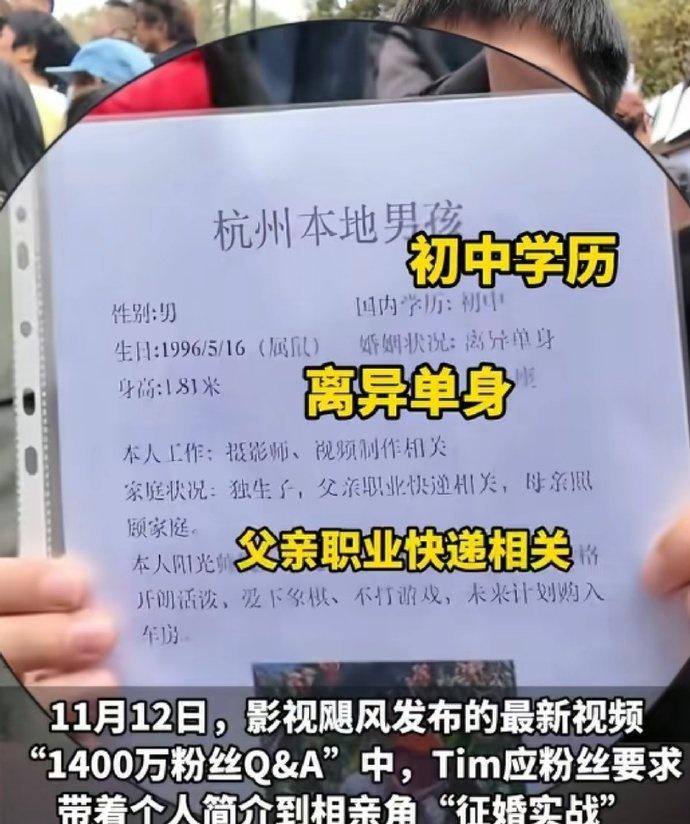 杭州本地男孩
初中学历
性别:男
国内学历: 初中
生日:1996/5/16（属鼠）
婚姻状况: 离异单身
身高:1.81米
离异单身
本人工作: 摄影师、视频制作相关
家庭状况: 独生子，父亲职业快递相关，母亲照
顾家庭。
父亲职业快递相关
本人阳光
格
开朗活泼，爱下象棋、不打游戏，未来计划购入
车房
11月12日，影视飓风发布的最新视频
“1400万粉丝Q&A”中，Tim应粉丝要求
带着个人简介到相亲角“征婚实战”